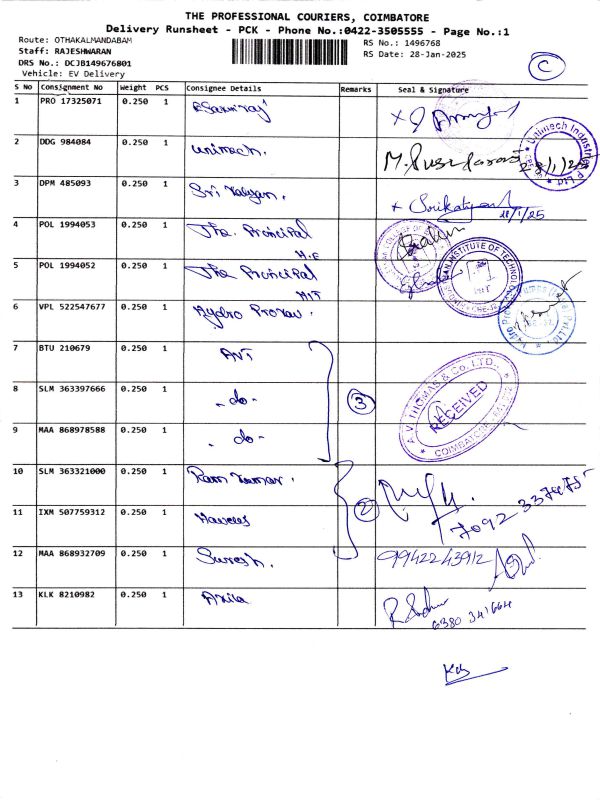 THE PROFESSIONAL COURIERS, COIMBATORE
Delivery Runsheet - PCK - Phone No.:0422-3505555 - Page No.:1
Route: OTHAKALMANDABAM
RS No.: 1496768
Staff: RAJESHWARAN
RS Date: 28-Jan-2025
DRS No.: DCJB149676801
Vehicle: EV Delivery
C
S No Consignment No Weight PCS Consignee Details Remarks Seal & Signature
1 PRO 17325071 0.250 1
2 DDG 984084 0.250 1 Unimech.
Unimech Industries P Ltd
3 DPM 485093 0.250 1 Sri
28/1/25
4 POL 1994053 0.250 1 The Principal
5 POL 1994052 0.250 1 The Principal
HIT
INSTITUTE OF TECHNOLOGY
6 VPL 522547677 0.250 1 Hydro
7 BTU 210679 0.250 1 AVT
8 SLM 363397666 0.250 1 - do - 3
A.V. THOMAS & CO. LTD.
RECEIVED
COIMBATORE
9 MAA 868978588 0.250 1 - do -
10 SLM 363321000 0.250 1 Ram Kumar.
11 IXM 507759312 0.250 1 2
12 MAA 868932709 0.250 1 Suresh. 9942243912
13 KLK 8210982 0.250 1 Anila
6380 341664